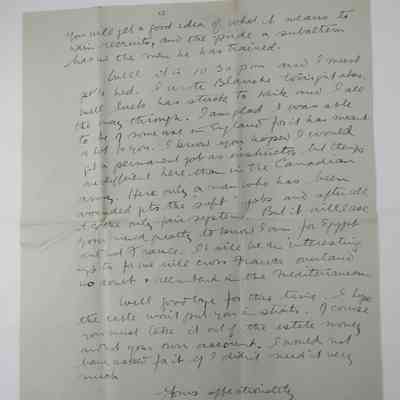 you will get a good idea of what it means to
train recruits, and the pride a subaltern
has in the men he has trained.
Well it is 10.30 pm and I must
get to bed. I wrote Blanche tonight also.
Well luck has stuck to Mike and I all
the way through. I am glad I was able
to be of some use in England for it has meant
a lot to you. I know you hoped I would
get a permanent job as instructor, but things
are different here than in the Canadian
army. Here only a man who has been
wounded gets the soft jobs and after all
it is the only fair system. But it will ease
your mind greatly to know I am for Egypt
and not France. It will be an interesting
trip to for we will cross France overland
to coast & reembark in the Mediterranean.
Well good bye for this time. I hope
the cable won't put you in straits. Of course
you must take it out of the estate money
and not your own account. I would not
have asked for it if I didn't need it very
much
Yours affectionately